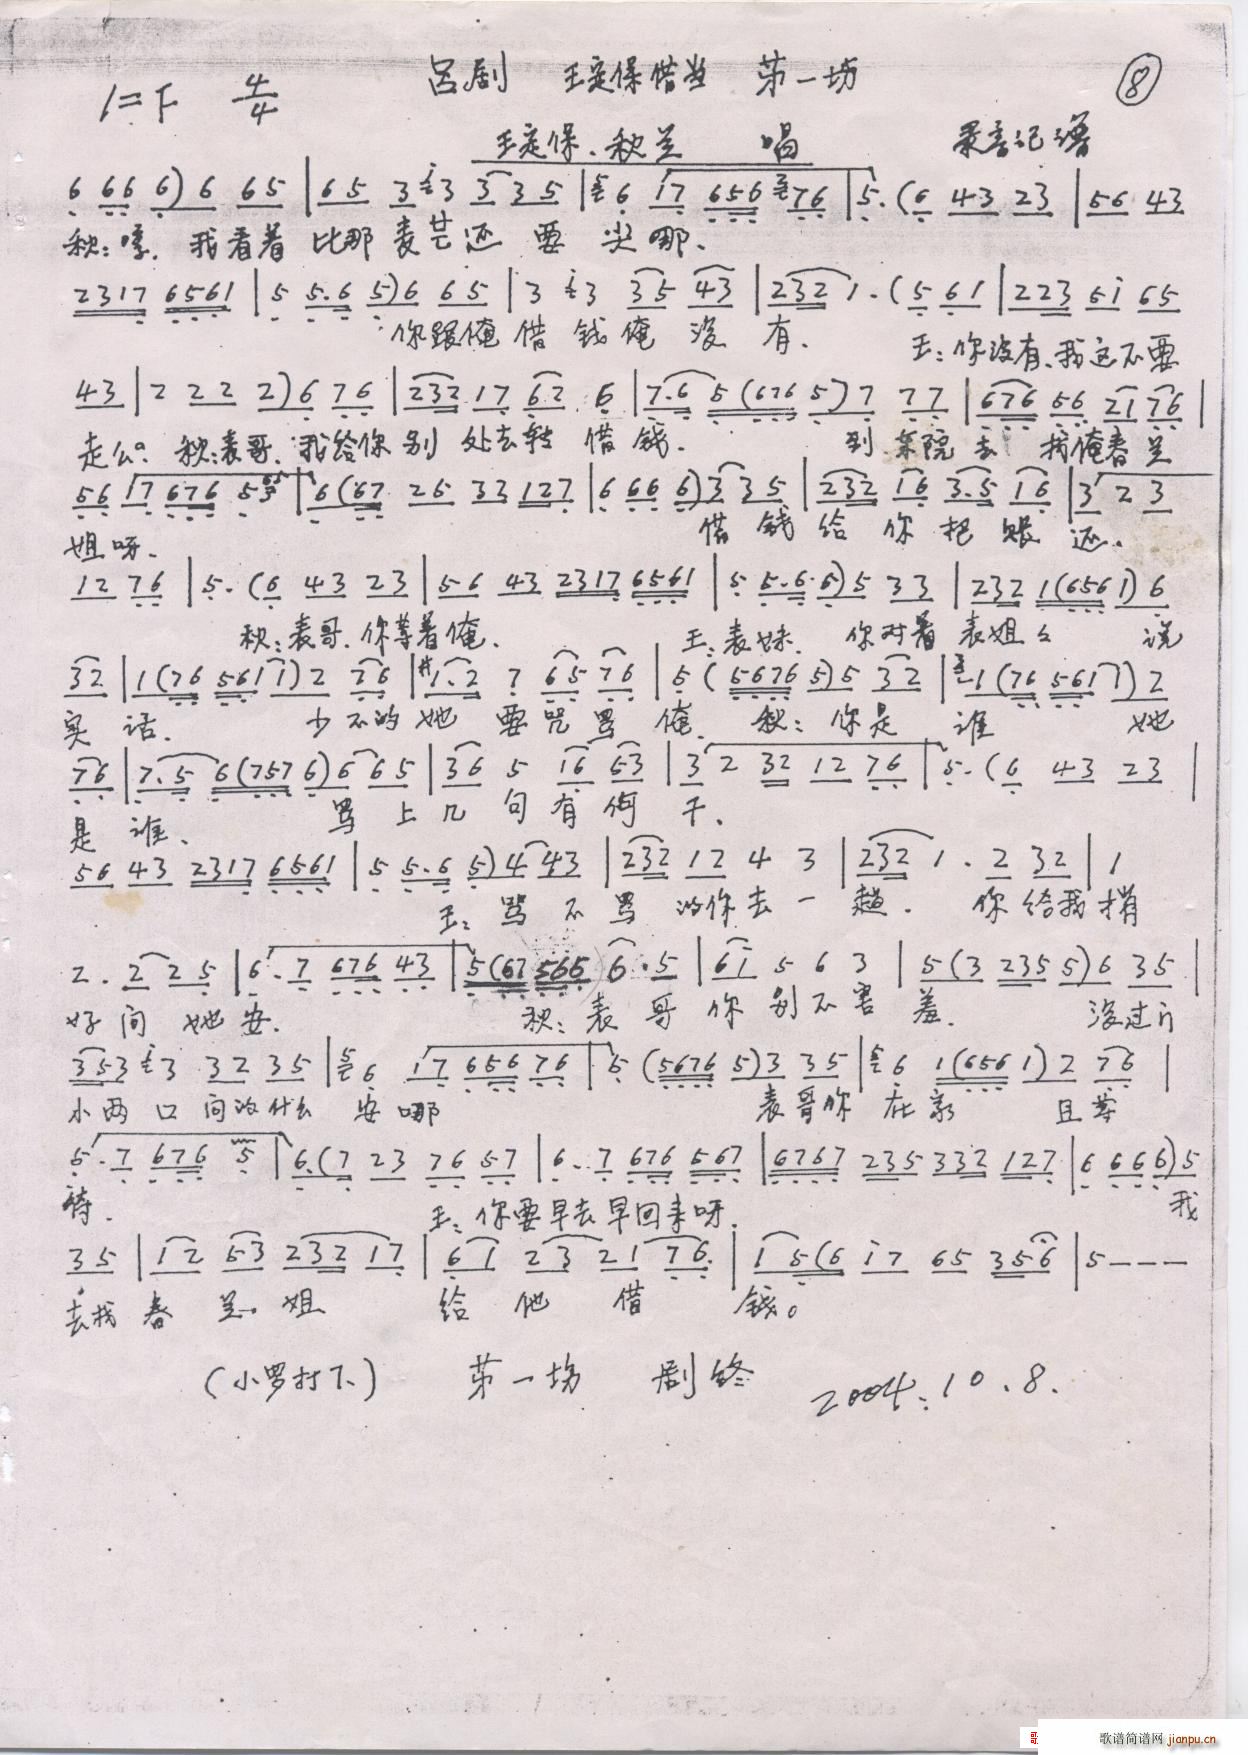 吕剧 王定保借当 第一场 ⑧
1=F 4/4
王定保、秋兰 唱 录音记谱
6 66 6) 6 65 | 65 3 3 3 35 | 6 17 656 76 | 5.(6 43 23 | 56 43
秋:嗯. 我看着 比那表芒还要尖哪.
2317 6561 | 5 5.6 5)6 65 | 3 3 35 43 | 232 1.(5 61 | 223 51 65
你跟俺借钱俺没有. 王:你没有、我这不要
43 | 2 2 2 2) 6 76 | 232 17 62 6 | 7.6 5(676 5) 7 77 | 676 56 21 76 |
走么? 秋:表哥.我给你别处去转借钱. 到东院去找俺春兰
56 17 676 53 | 6(67 25 33 127 | 6 66 6) 3 35 | 232 16 3.5 16 | 3 2 3
姐呀. 借钱给你把账还.
12 76 | 5.(6 43 23 | 56 43 2317 6561 | 5 5.6 5) 5 33 | 232 1(6561) 6
秋:表哥.你等着俺. 王:表妹. 你对着表姐么说
32 | 1(76 561 1) 2 76 | #1.2 7 65 76 | 5(5676 5) 5 32 | 1(76 561 1) 2
实话. 少不的她要咒骂俺. 秋:你是谁她
76 | 7.5 6(757 6) 6 65 | 36 5 16 53 | 3 2 32 12 76 | 5.(6 43 23 |
是谁、 骂上几句有何干.
56 43 2317 6561 | 5 5.6 5) 4 43 | 232 12 4 3 | 232 1.2 32 | 1
王:骂不骂的你去一趟. 你给我捎
2.2 25 | 6.7 676 43 | 5(67 565) 6.5 | 61 5 6 3 | 5(3 235 5) 6 35 |
好问她安. 秋:表哥你别不害羞. 没过门
353 3 32 35 | 6 17 656 76 | 5(5676 5) 3 35 | 6 1(6561) 2 76 |
小两口问的什么安哪 表哥你在家且等
5.7 676 5 | 6.(7 23 76 57 | 6.7 676 567 | 6767 235 332 127 | 6 66 6) 5
待. 王:你要早去早回来呀. 我
35 | 12 53 232 17 | 61 23 21 76 | 1 5(6 17 65 356 | 5---
去找春兰姐给他借钱。
(小罗打下) 第一场 剧终 2004.10.8.
歌谱简谱网 jianpu.cn